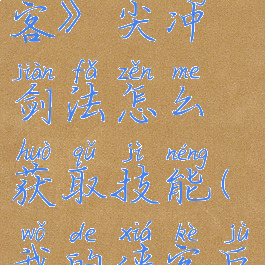 客》 尖冲
jiàn fǎ zěn me
剑法怎么
huò qǔ jì néng
获取技能(
wǒ de xiá kè jù
我的侠客巨